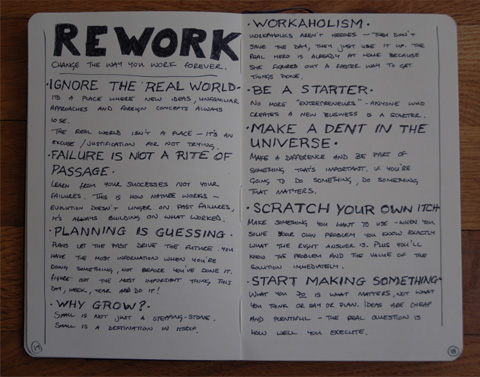 REWORK
CHANGE THE WAY YOU WORK FOREVER.
·IGNORE THE REAL WORLD·
IT'S A PLACE WHERE NEW IDEAS, UNFAMILIAR
APPROACHES AND FOREIGN CONCEPTS ALWAYS
LOSE.
THE REAL WORLD ISN'T A PLACE – IT'S AN
EXCUSE / JUSTIFICATION FOR NOT TRYING.
·FAILURE IS NOT A RITE OF
PASSAGE·
LEARN FROM YOUR SUCCESSES NOT YOUR
FAILURES, THIS IS HOW NATURE WORKS –
EVOLUTION DOESN'T LINGER ON PAST FAILURES,
IT'S ALWAYS BUILDING ON WHAT WORKED.
·PLANNING IS GUESSING·
PLANS LET THE PAST DRIVE THE FUTURE. YOU
HAVE THE MOST INFORMATION WHEN YOU'RE
DOING SOMETHING, NOT BEFORE YOU'VE DONE IT.
FIGURE OUT THE MOST IMPORTANT THING THIS
DAY, WEEK, YEAR AND DO IT!
·WHY GROW?·
SMALL IS NOT JUST A STEPPING-STONE.
SMALL IS A DESTINATION IN ITSELF.
·WORKAHOLISM·
WORKAHOLICS AREN'T HEROES – THEY DON'T
SAVE THE DAY, THEY JUST USE IT UP. THE
REAL HERO IS ALREADY AT HOME BECAUSE
SHE FIGURED OUT A FASTER WAY TO GET
THINGS DONE.
·BE A STARTER·
NO MORE "ENTREPRENEURS" – ANYONE WHO
CREATES A NEW BUSINESS IS A STARTER.
·MAKE A DENT IN THE
UNIVERSE·
MAKE A DIFFERENCE AND BE PART OF
SOMETHING THAT'S IMPORTANT. IF YOU'RE
GOING TO DO SOMETHING, DO SOMETHING
THAT MATTERS.
·SCRATCH YOUR OWN ITCH
MAKE SOMETHING YOU WANT TO USE – WHEN YOU
SOLVE YOUR OWN PROBLEM YOU KNOW EXACTLY
WHAT THE RIGHT ANSWER IS. PLUS YOU'LL
KNOW THE PROBLEM AND THE VALUE OF THE
SOLUTION IMMEDIATELY.
·START MAKING SOMETHING·
WHAT YOU DO IS WHAT MATTERS, NOT WHAT
YOU THINK OR SAY OR PLAN. IDEAS ARE CHEAP
AND PLENTIFUL – THE REAL QUESTION IS
HOW WELL YOU EXECUTE.